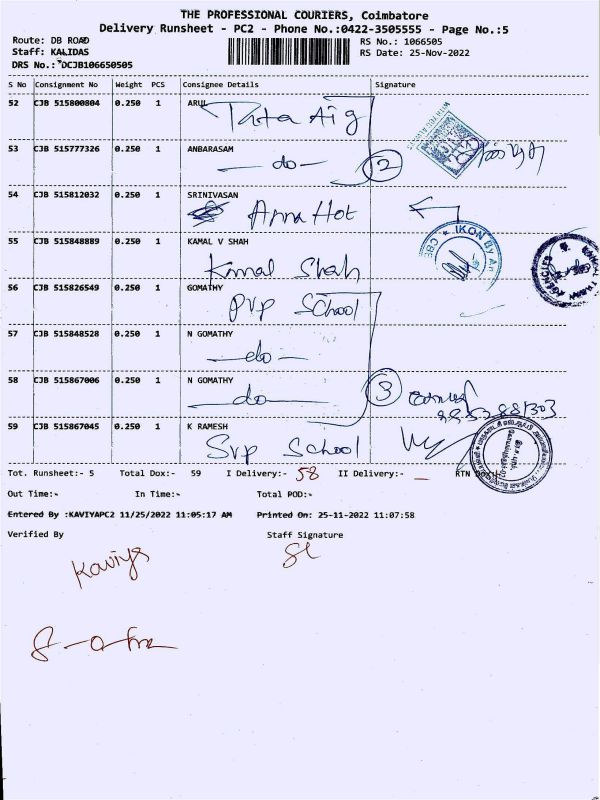 THE PROFESSIONAL COURIERS, Coimbatore
Delivery Runsheet - PC2 - Phone No.:0422-3505555 - Page No.:5
Route: DB ROAD
RS No.: 1066505
Staff: KALIDAS
RS Date: 25-Nov-2022
DRS No.:*DCJB106650505
S No Consignment No Weight PCS Consignee Details Signature
52 CJB 515800804 0.250 1 ARUL
Tata Aig
53 CJB 515777326 0.250 1 ANBARASAM
- do - 2
54 CJB 515812032 0.250 1 SRINIVASAN
Anna Hot
55 CJB 515848889 0.250 1 KAMAL V SHAH
IKON By An
Kamal Shah
56 CJB 515826549 0.250 1 GOMATHY
PVP School
57 CJB 515848528 0.250 1 N GOMATHY
- do -
58 CJB 515867006 0.250 1 N GOMATHY
- do - 3
59 CJB 515867045 0.250 1 K RAMESH
SVP School
Tot. Runsheet:- 5 Total Dox:- 59 I Delivery:- 58 II Delivery:- - RTN
Out Time:- In Time:- Total POD:-
Entered By :KAVIYAPC2 11/25/2022 11:05:17 AM Printed On: 25-11-2022 11:07:58
Verified By Staff Signature
Kaviya